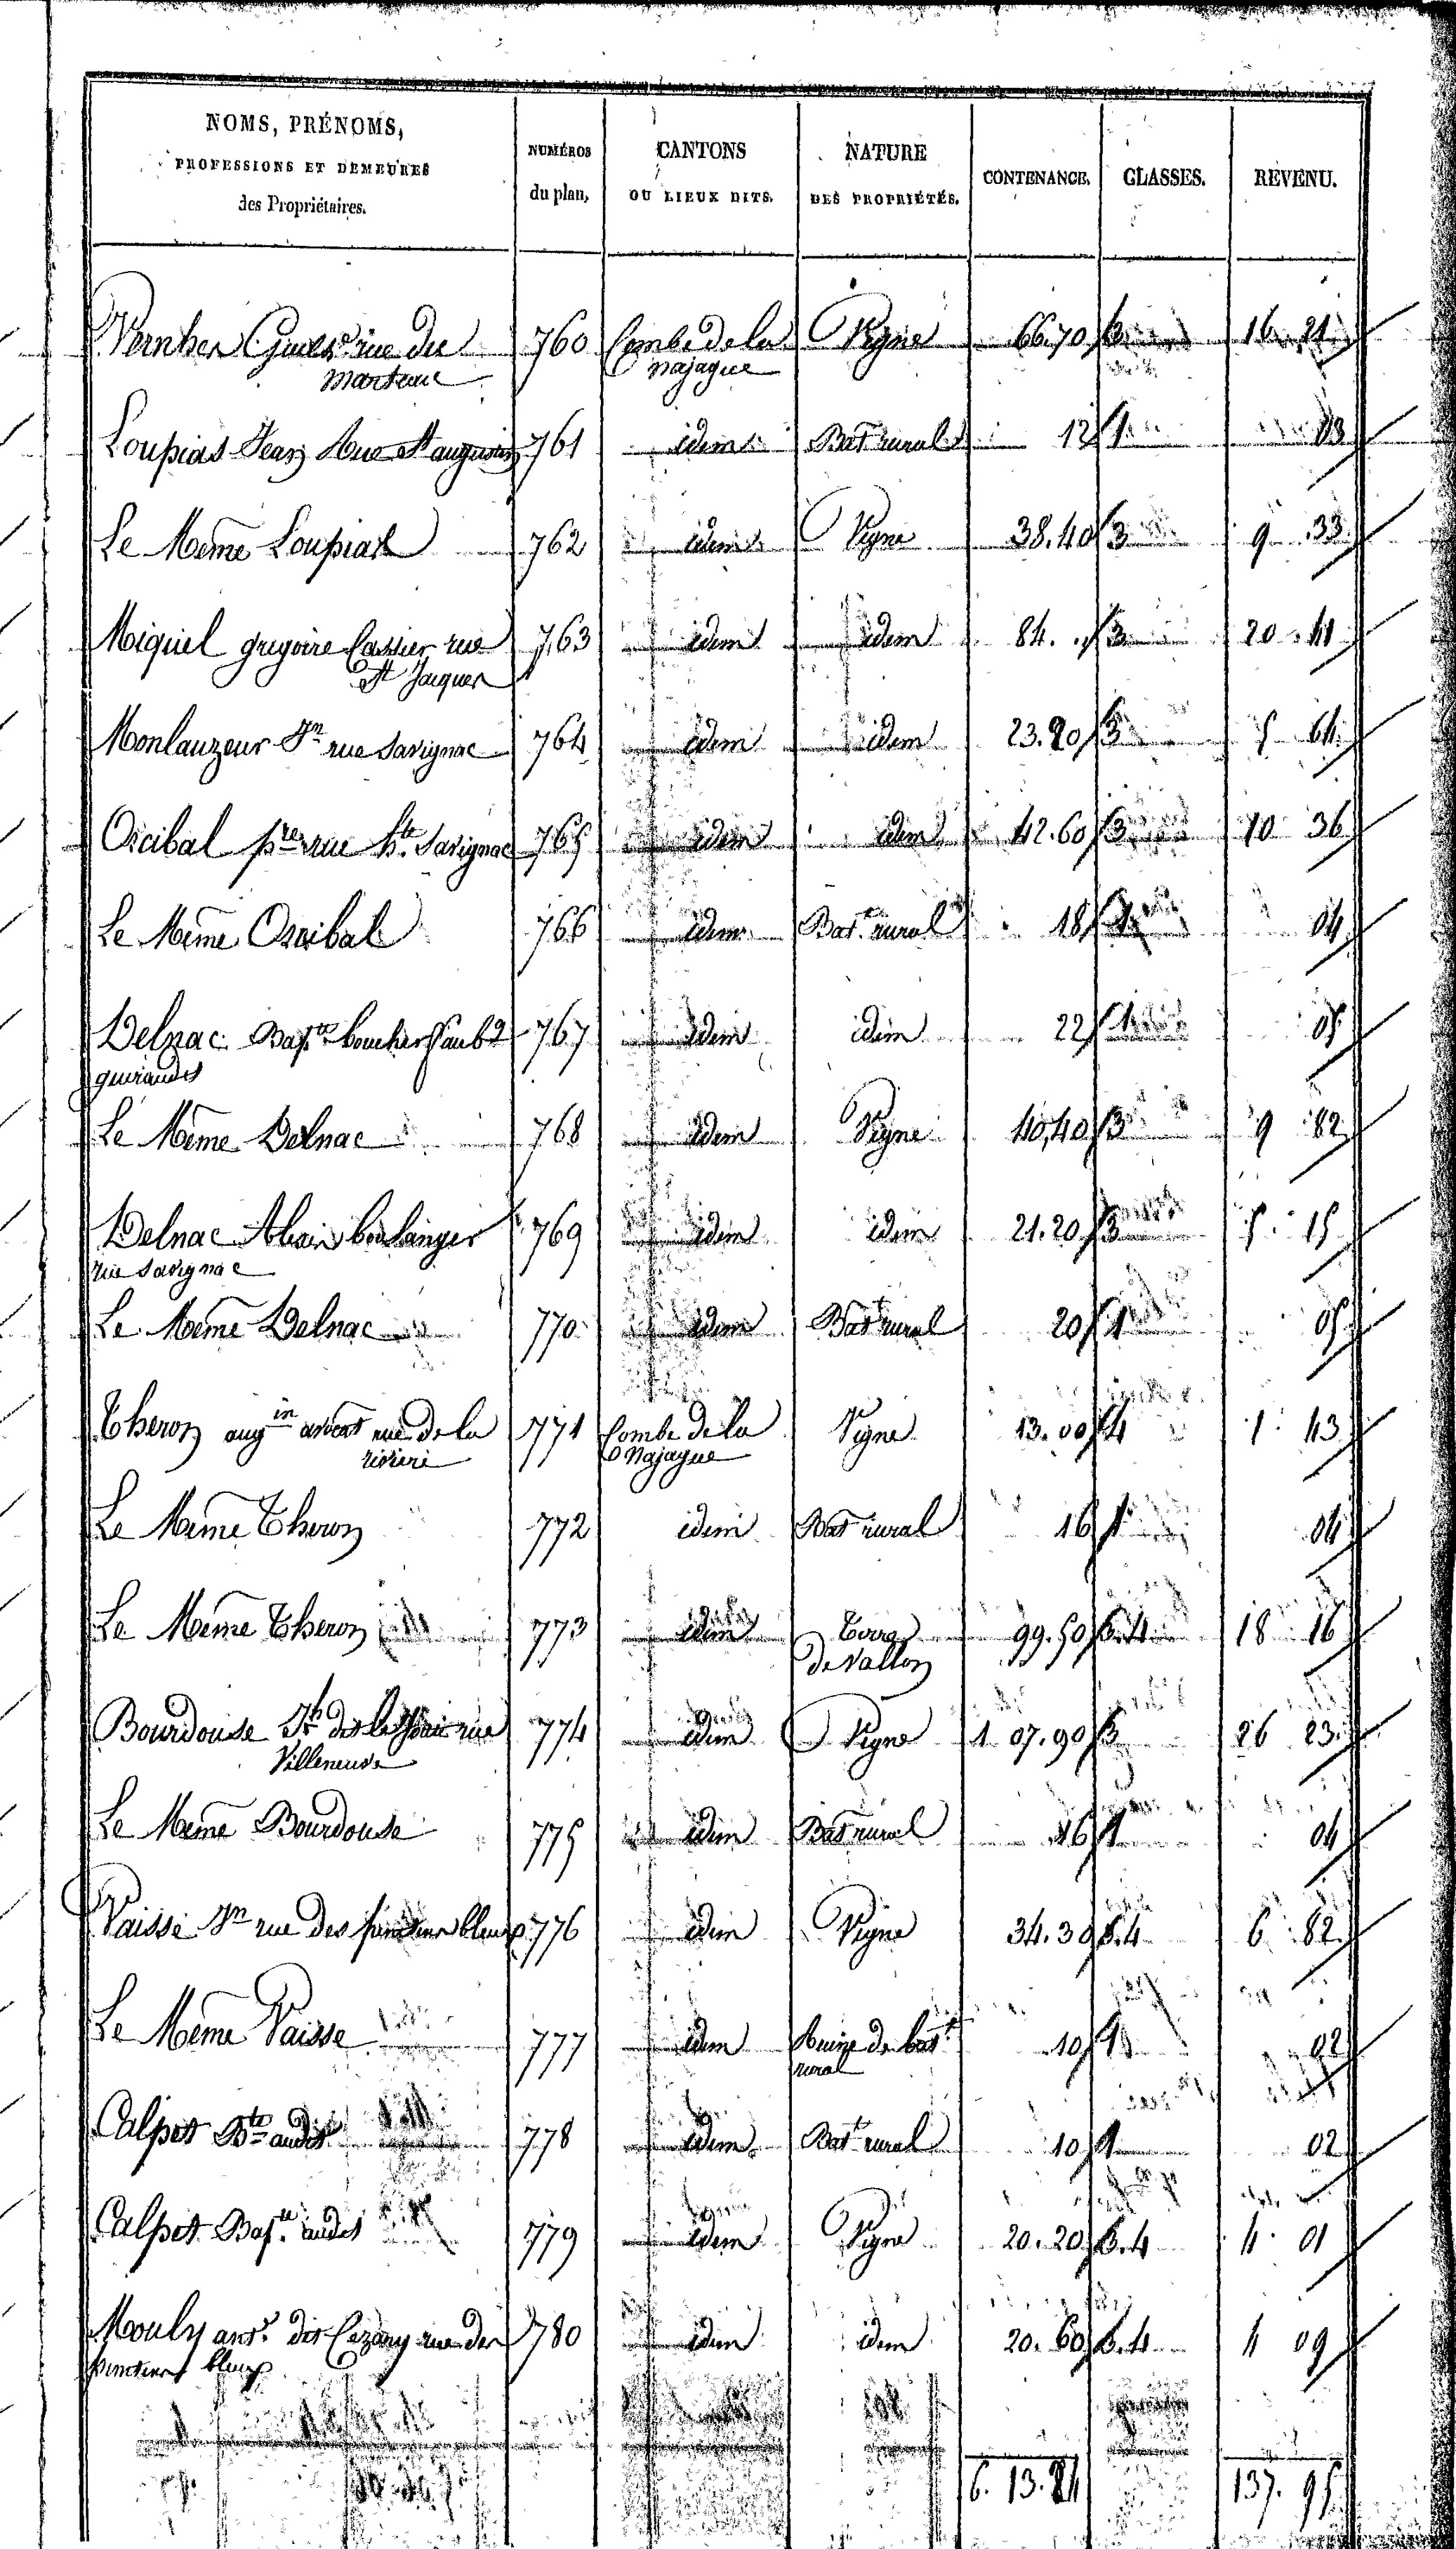 NOMS, PRÉNOMS,
PROFESSIONS ET DEMEURES
des Propriétaires.
NUMÉROS
du plan,
CANTONS
OU LIEUX DITS.
NATURE
DES PROPRIÉTÉS.
CONTENANCE.
CLASSES.
REVENU.
Vernhes rue du 760 Combe de la Vigne 66.70 3 16 21
Marteau najague
Loupias Jean Rue St augustin 761 idem Bat rural 12 1 03
Le Meme Loupias 762 idem Vigne 38.40 3 9 33
Miquel gregoire rue 763 idem idem 84. 3 20 41
St Jacques
Monlauzeur Jn rue Savignac 764 idem idem 23.20 3 5 64
Orcibal pre rue Ste Savignac 765 idem idem 42.60 3 10 36
Le Meme Orcibal 766 idem Bat. rural 18 1 04
Delnac Bapte boucher faubg 767 idem idem 22 1 05
guiraudet
Le Meme Delnac 768 idem Vigne 40,40 3 9 82
Delnac boulanger 769 idem idem 21.20 3 5 15
rue Savignac
Le Meme Delnac 770 idem Bat rural 20 1 05
Theron augin rue de la 771 Combe de la Vigne 13.00 4 1 43
riviere Najague
Le Meme Theron 772 idem Bat rural 16 1 04
Le Meme Theron 773 idem Terre 99.50 3.4 18 16
de Vallon
Bourdouse Jh rue 774 idem Vigne 1 07.90 3 26 23
Villeneuve
Le Meme Bourdouse 775 idem Bat rural 16 1 04
Vaisse Jn rue des bleux 776 idem Vigne 34.30 3.4 6 82
Le Meme Vaisse 777 idem Ruine de bat 10 1 02
rural
Calpet Bte audet 778 idem Bat rural 10 1 02
Calpet Bapte audet 779 idem Vigne 20.20 3.4 4 01
Mouly ant. dit rue des 780 idem idem 20.60 3.4 4 09
bleux
6. 13. 84 137. 95